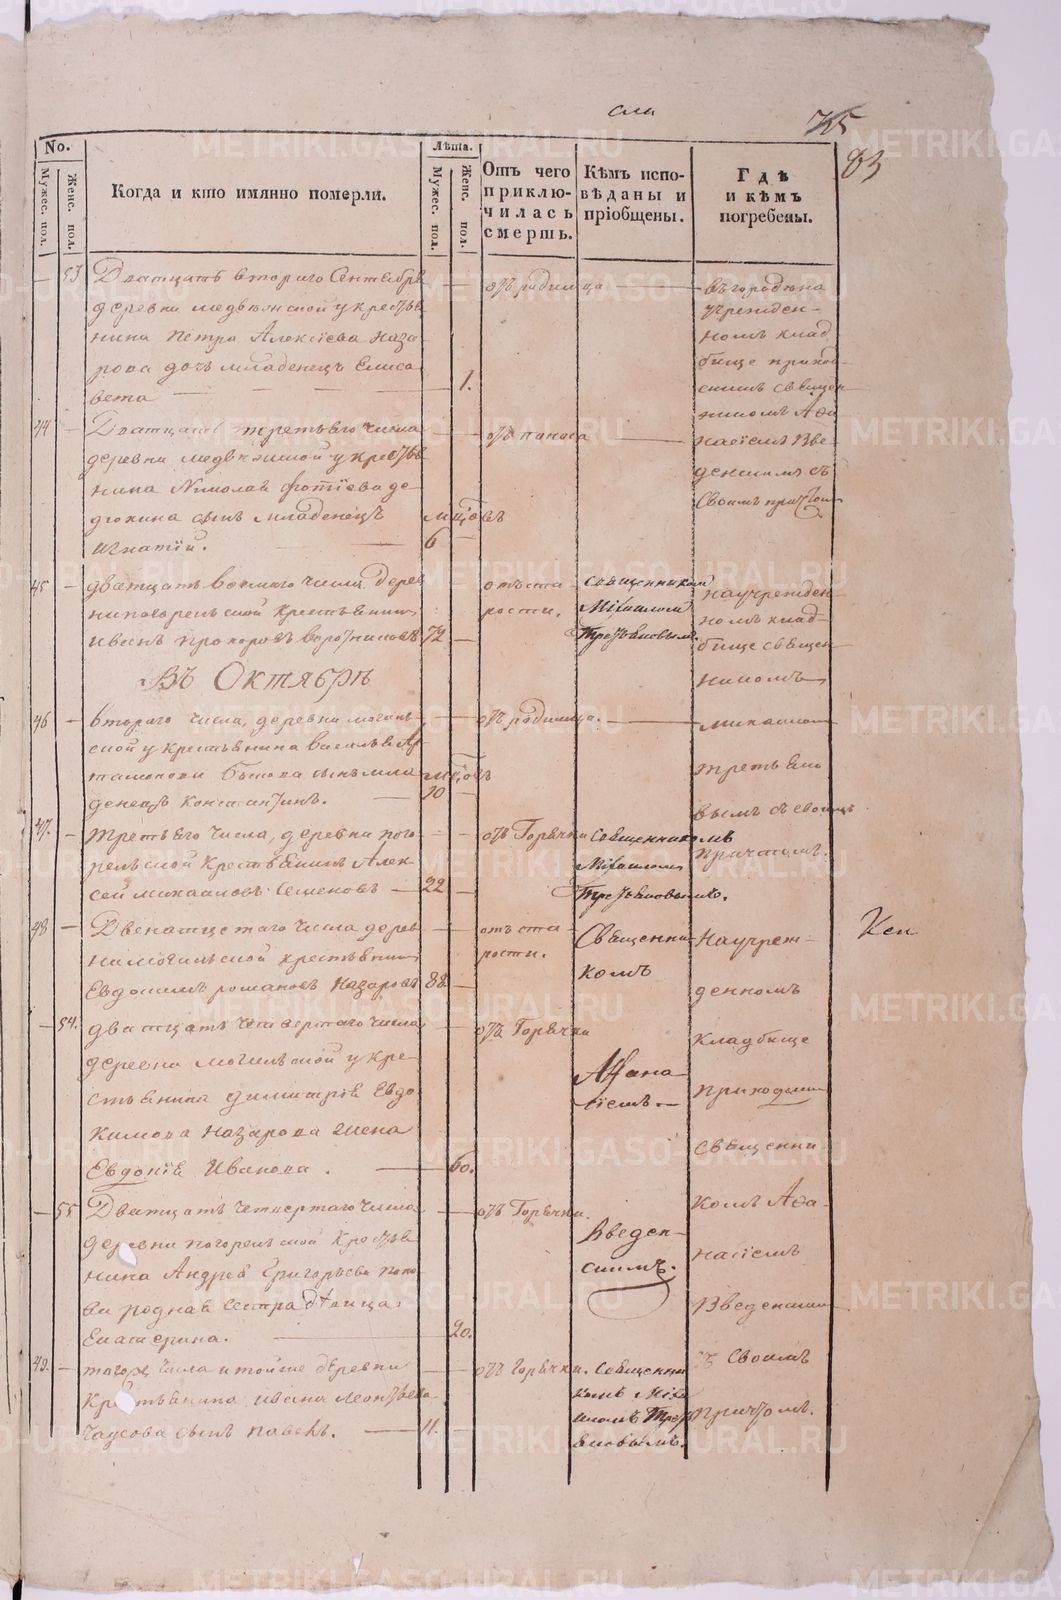 75
83
No.
Мужес. пол.
Женс. пол.
Когда и кто имянно померли.
Лѣта.
Мужес. пол.
Женс. пол.
Отъ чего приклю-
чилась
смерть.
Кѣмъ испо-
вѣданы и
пріобщены.
Гдѣ
и кѣмъ
погребены.
53 Дватцать втораго Сентября
деревни медвѣжской у крестья
нина Петра Алексіева Наза
рова дочь младенецъ Елиса
вета
1.
отъ родимца
въ городѣ на
учрежден-
номъ клад
бище приход
скимъ священ
никомъ Афа
44 Дватцать третьего числа
деревни медвѣжской у крестья
нина Николая Фотіева де
дюхина сынъ младенецъ
Игнатій.
мцовъ
6
отъ поноса
насіемъ Вве
денскимъ съ
своимъ причтомъ
45 дватцать восмаго числа дерев
ни погорельской крестьянинъ
Иванъ прохоровъ
72
отъ ста
рости.
священникомъ
Михаиломъ
Третьяковымъ.
на учрежден
номъ клад-
бище священ
никомъ
Въ Октябрѣ
46 втораго числа, деревни могиль
ской у крестьянина василья Ар
тамонова Быкова сынъ мла
денецъ Константинъ.
мцовъ
10
отъ родимца.
михаиломъ
третьяко
вымъ съ своимъ
47. третьего числа, деревни пого
рельской крестьянинъ Алек-
сей михаиловъ Семеновъ
22
отъ Горячки
священникомъ
Михаиломъ
Третьяковымъ.
причтомъ.
48 Двенатцетаго числа дерев
ни могильской крестьянинъ
Евдокимъ романовъ Назаровъ
88.
отъ ста
рости.
Священни
комъ
На учреж-
денномъ
54. дватцать четвертаго числа
деревни могильской у кре
стьянина Димитрія Евдо
кимова Назарова жена
Евдокія Иванова.
60.
отъ Горячки
Афана
сіемъ
кладбище
приходскимъ
священни
55 Дватцать четвертаго числа
деревни погорельской Крестья
нина Андрея Григорьева попо
ва родная сестра девица
Екатерина.
20.
отъ Горячки.
Введен-
скимъ.
комъ Афа-
насіемъ
Введенским
49. тогожъ числа и тойже деревни
крестьянина ивана Леонтьева
Чаусова сынъ павелъ.
11.
отъ горячки.
Священни
комъ Миха
иломъ Трет
яковымъ.
съ своимъ
причтомъ.